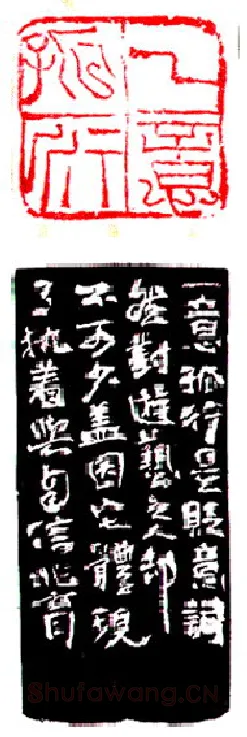 一意
孤行
一意孤行是貶意詞
然對遊藝之人却
不可少蓋因它體現
了执着與自信兆育
Shufawang.CN